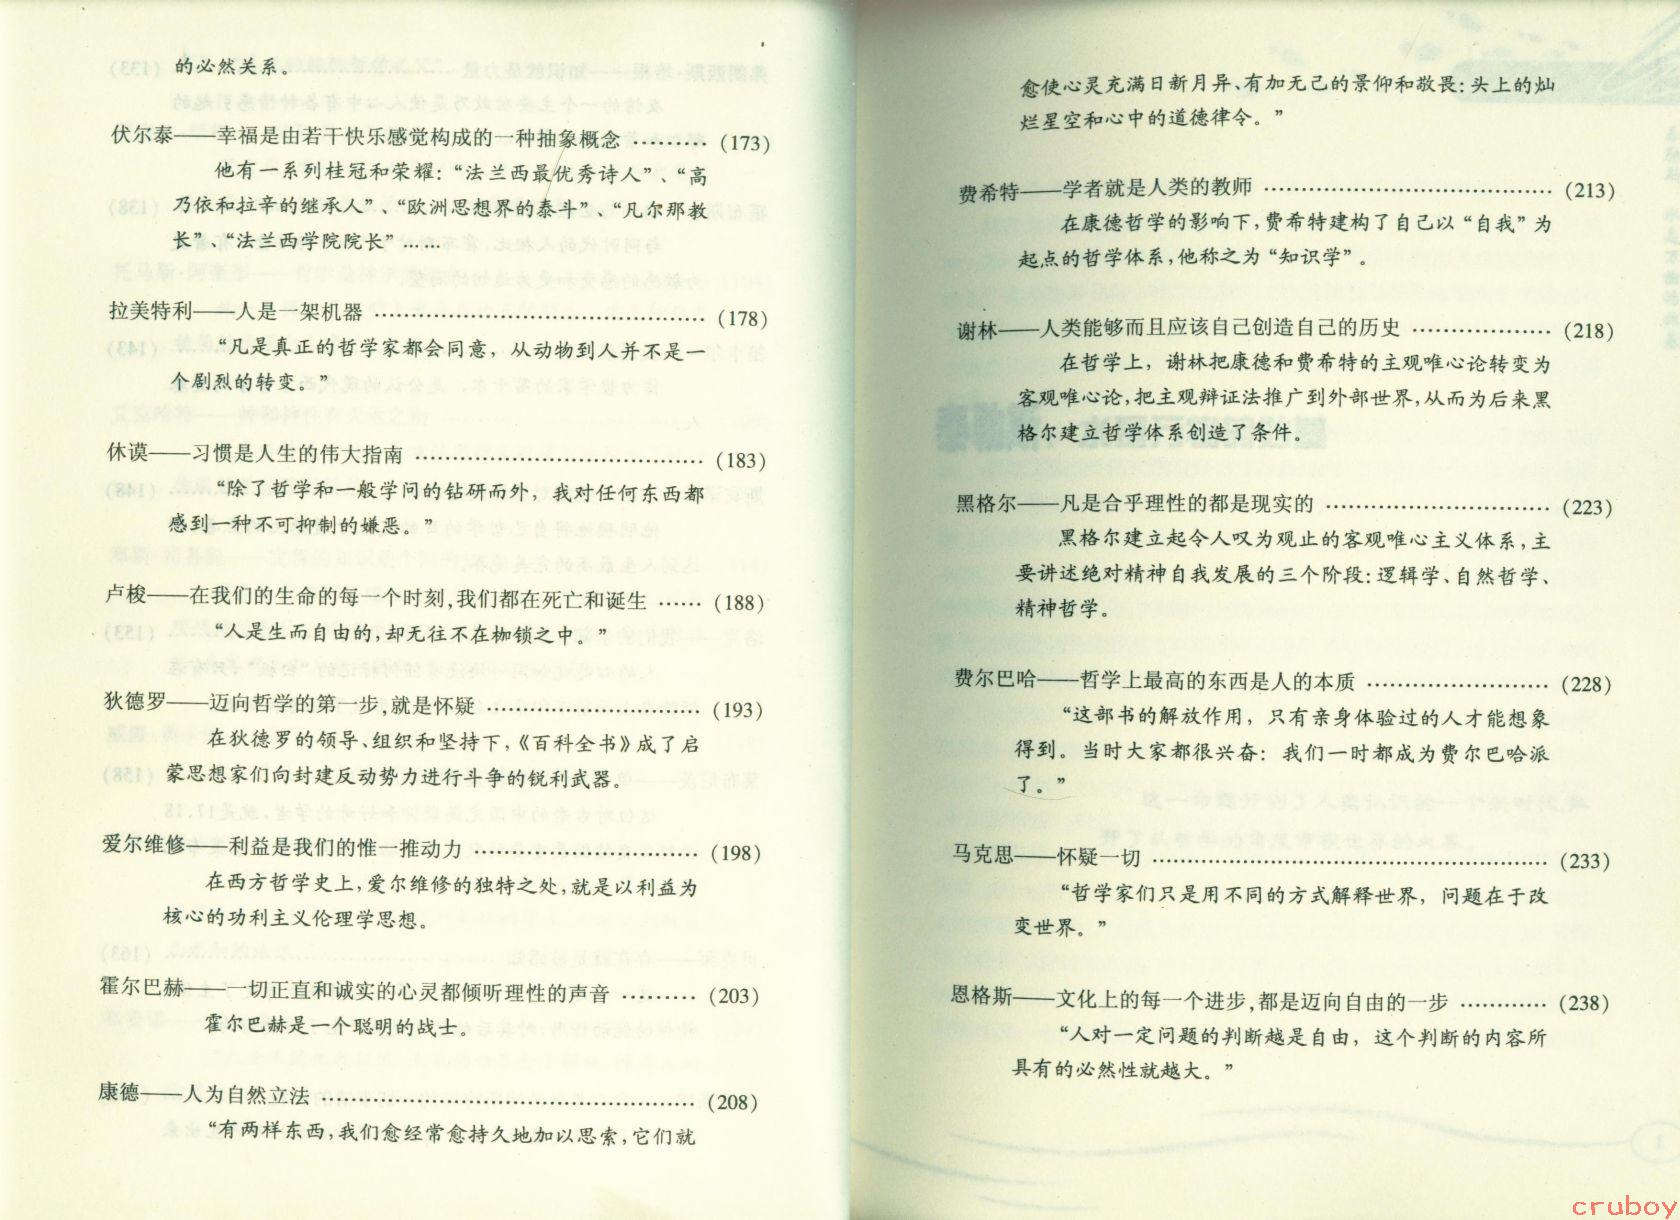 的必然关系。
伏尔泰——幸福是由若干快乐感觉构成的一种抽象概念 ……… (173)
他有一系列桂冠和荣耀：“法兰西最优秀诗人”、“高
乃依和拉辛的继承人”、“欧洲思想界的泰斗”、“凡尔那教
长”、“法兰西学院院长”……
拉美特利——人是一架机器 ………………………………………… (178)
“凡是真正的哲学家都会同意，从动物到人并不是一
个剧烈的转变。”
休谟——习惯是人生的伟大指南 …………………………………… (183)
“除了哲学和一般学问的钻研而外，我对任何东西都
感到一种不可抑制的嫌恶。”
卢梭——在我们的生命的每一个时刻,我们都在死亡和诞生 …… (188)
“人是生而自由的,却无往不在枷锁之中。”
狄德罗——迈向哲学的第一步,就是怀疑 ………………………… (193)
在狄德罗的领导、组织和坚持下,《百科全书》成了启
蒙思想家们向封建反动势力进行斗争的锐利武器。
爱尔维修——利益是我们的惟一推动力 ………………………… (198)
在西方哲学史上,爱尔维修的独特之处,就是以利益为
核心的功利主义伦理学思想。
霍尔巴赫——一切正直和诚实的心灵都倾听理性的声音 ……… (203)
霍尔巴赫是一个聪明的战士。
康德——人为自然立法 ……………………………………………… (208)
“有两样东西,我们愈经常愈持久地加以思索,它们就
愈使心灵充满日新月异、有加无已的景仰和敬畏:头上的灿
烂星空和心中的道德律令。”
费希特——学者就是人类的教师 …………………………………… (213)
在康德哲学的影响下,费希特建构了自己以“自我”为
起点的哲学体系,他称之为“知识学”。
谢林——人类能够而且应该自己创造自己的历史 ……………… (218)
在哲学上，谢林把康德和费希特的主观唯心论转变为
客观唯心论,把主观辩证法推广到外部世界,从而为后来黑
格尔建立哲学体系创造了条件。
黑格尔——凡是合乎理性的都是现实的 ………………………… (223)
黑格尔建立起令人叹为观止的客观唯心主义体系,主
要讲述绝对精神自我发展的三个阶段:逻辑学、自然哲学、
精神哲学。
费尔巴哈——哲学上最高的东西是人的本质 …………………… (228)
“这部书的解放作用，只有亲身体验过的人才能想象
得到。当时大家都很兴奋：我们一时都成为费尔巴哈派
了。”
马克思——怀疑一切 ………………………………………………… (233)
“哲学家们只是用不同的方式解释世界，问题在于改
变世界。”
恩格斯——文化上的每一个进步,都是迈向自由的一步 ………… (238)
“人对一定问题的判断越是自由，这个判断的内容所
具有的必然性就越大。”
cruboy